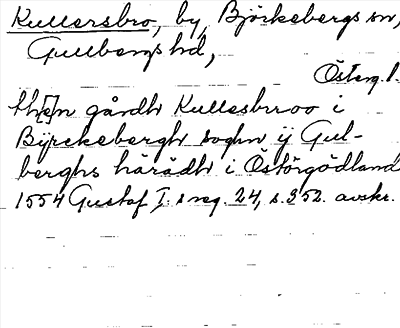 Kullersbro, by, Björkebergs sn,
Gullbergs hd,
Österg. l.
th[e]n gårdh Kullesbroo i
Byrckebergh soghn ij Gul-
berghs härädh i Östörgödland
1554 Gustaf I:s reg. 24, s. 352. avskr.